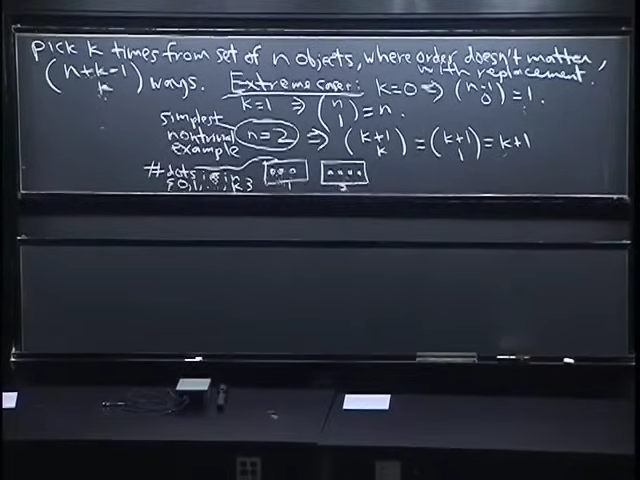 Pick k times from set of n objects, where order doesn't matter,
with replacement.
(n+k-1 k) ways. Extreme cases: k=0 ⇒ (n-1 0) = 1.
k=1 ⇒ (n 1) = n.
simplest nontrivial example n=2 ⇒ (k+1 k) = (k+1 1) = k+1
# dots in
{0,1,...,k}
1 2